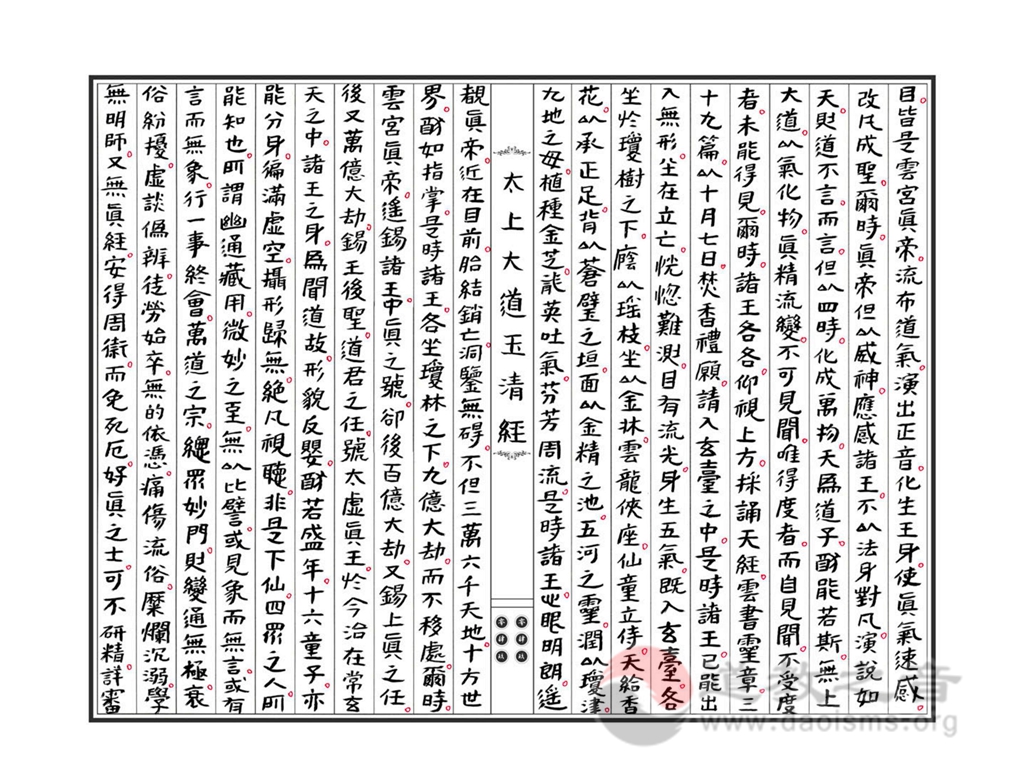 目皆是雲宮真帝流布道氣演出正音化生王身使真氣速感
改凡成聖爾時真帝但以威神應感諸王不以法身對凡演說如
天則道不言而言但以四時化成萬物天為道子酧能若斯無上
大道以氣化物真精流變不可見聞唯得度者而自見聞不受度
者未能得見爾時諸王各各仰視上方採誦天經雲書靈章三
十九篇以十月七日焚香禮願請入玄臺之中是時諸王已能出
入無形坐在立亡恍惚難測目有流光身生五氣既入玄臺各
坐於瓊樹之下廕以瑤枝坐以金牀雲龍俠座仙童立侍天給香
花以承正足背以蒼壁之垣面以金精之池五河之靈潤以瓊津
九地之母植種金芝龍英吐氣芬芳周流是時諸王心眼明朗遥
太上大道玉清經
覩真帝近在目前胎結銷亡洞鑒無碍不但三萬六千天地十方世
界酧如指掌是時諸王各坐瓊林之下九億大劫而不移處爾時
雲宮真帝遥錫諸王中真之號卻後百億大劫又錫上真之任
後又萬億大劫錫王後聖道君之任號太虛真王於今治在常玄
天之中諸王之身為聞道故形貌反嬰酧若盛年十六童子亦
能分身徧滿虛空攝形歸無絶凡視聽非是下仙四眾之人所
能知也所謂幽通藏用微妙之至無以比譬或見象而無言或有
言而無象行一事終會萬道之宗總眾妙門則變通無極衰
俗紛擾虛談偽辨徒勞始卒無的依憑痛傷流俗糜爛沉溺學
無明師又無真經安得周衛而免死厄好真之士可不研精詳審
零肆玖
零肆伍
道教之音
www.daoisms.org